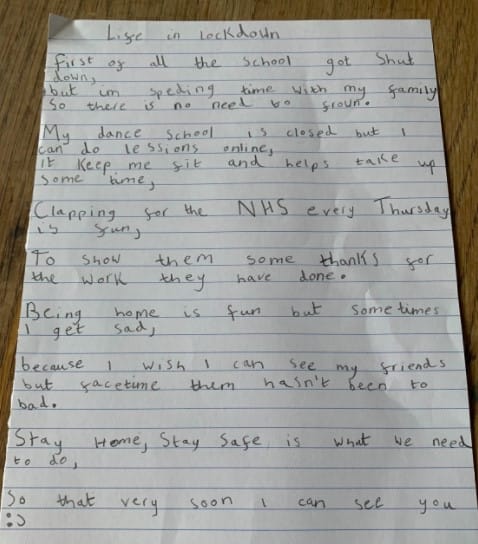 Life in lockdown
first of all the school got shut
down,
but im speding time with my family
So there is no need to frown.
My dance school is closed but I
can do lessions online,
it keep me fit and helps take up
some time,
Clapping for the NHS every Thursday
is fun,
To show them some thanks for
the work they have done.
Being home is fun but sometimes
I get sad,
because I wish I can see my friends
but facetime them hasn't been to
bad.
Stay Home, Stay Safe is what we need
to do,
So that very soon I can see you
:)